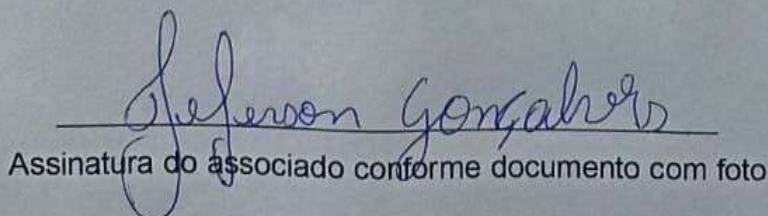 Jeferson Gonçalves
Assinatura do associado conforme documento com foto